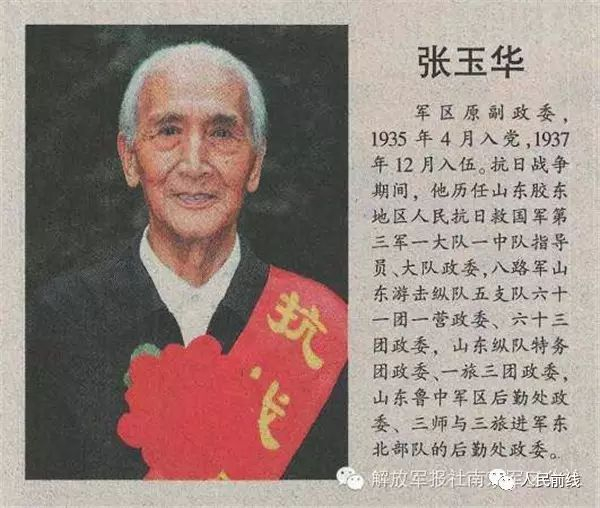 张玉华
军区原副政委，
1935年4月入党,1937
年12月入伍。抗日战争
期间，他历任山东胶东
地区人民抗日救国军第
三军一大队一中队指导
员、大队政委，八路军山
东游击纵队五支队六十
一团一营政委、六十三
团政委，山东纵队特务
团政委、一旅三团政委，
山东鲁中军区后勤处政
委、三师与三旅进军东
北部队的后勤处政委。
抗战
解放军报社南
人民前线